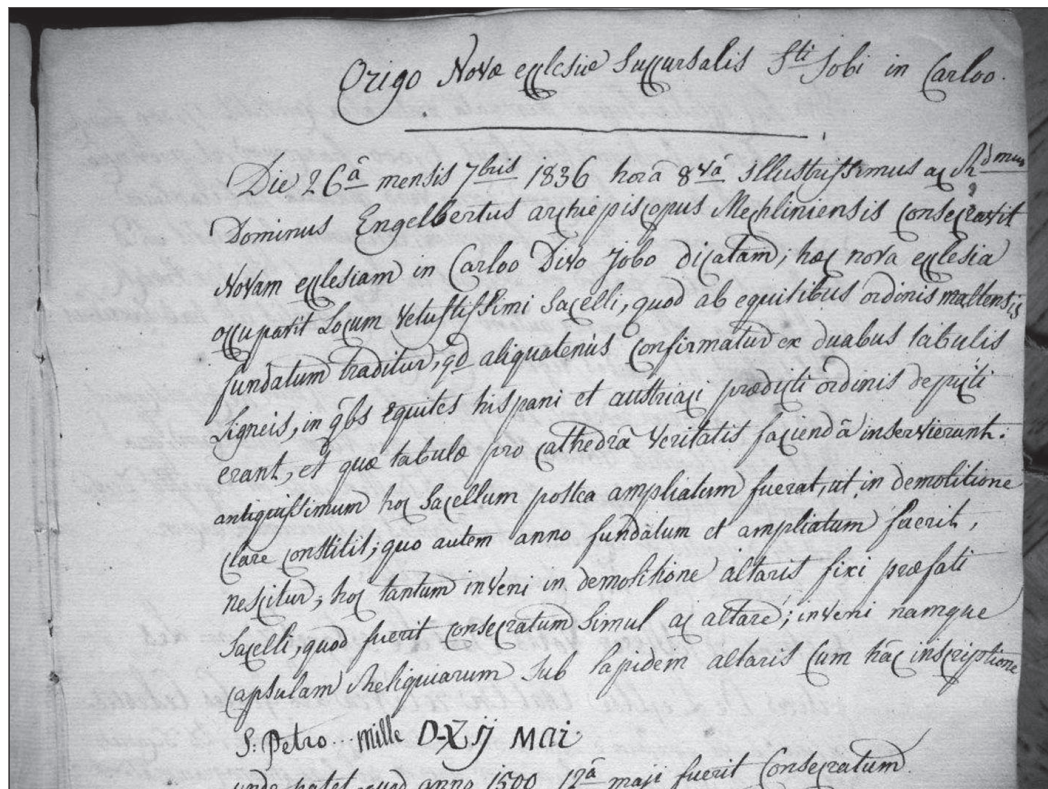 Origo Novæ ecclesiæ Succursalis Sti Jobi in Carloo.
Die 26â mensis 7bris 1836 horâ 8vâ Illustrissimus ac Rdmus
Dominus Engelbertus archiepiscopus Mechliniensis consecravit
Novam ecclesiam in Carloo Divo Jobo dicatam; hæc nova ecclesia
occupavit Locum Vetustissimi Sacelli, quod ab equitibus ordinis maltensis
fundatum traditur, qd aliquatenus confirmatur ex duabus tabulis
Ligneis, in qbs equites hispani et austriaci prædicti ordinis depicti
erant, et quæ tabulæ pro cathedrâ Veritatis faciendâ inservierunt:
antiquissimum hoc Sacellum postea ampliatum fuerat, ut in demolitione
clare constitit; quo autem anno fundatum et ampliatum fuerit,
nescitur; hoc tantum inveni in demolitione altaris fixi præfati
Sacelli, quod fuerit consecratum simul ac altare; inveni namque
capsulam Reliquiarum sub lapidem altaris cum hâc inscriptione
S: Petro... mille D-X ij Mai
unde patet quod anno 1500 12â maji fuerit consecratum.